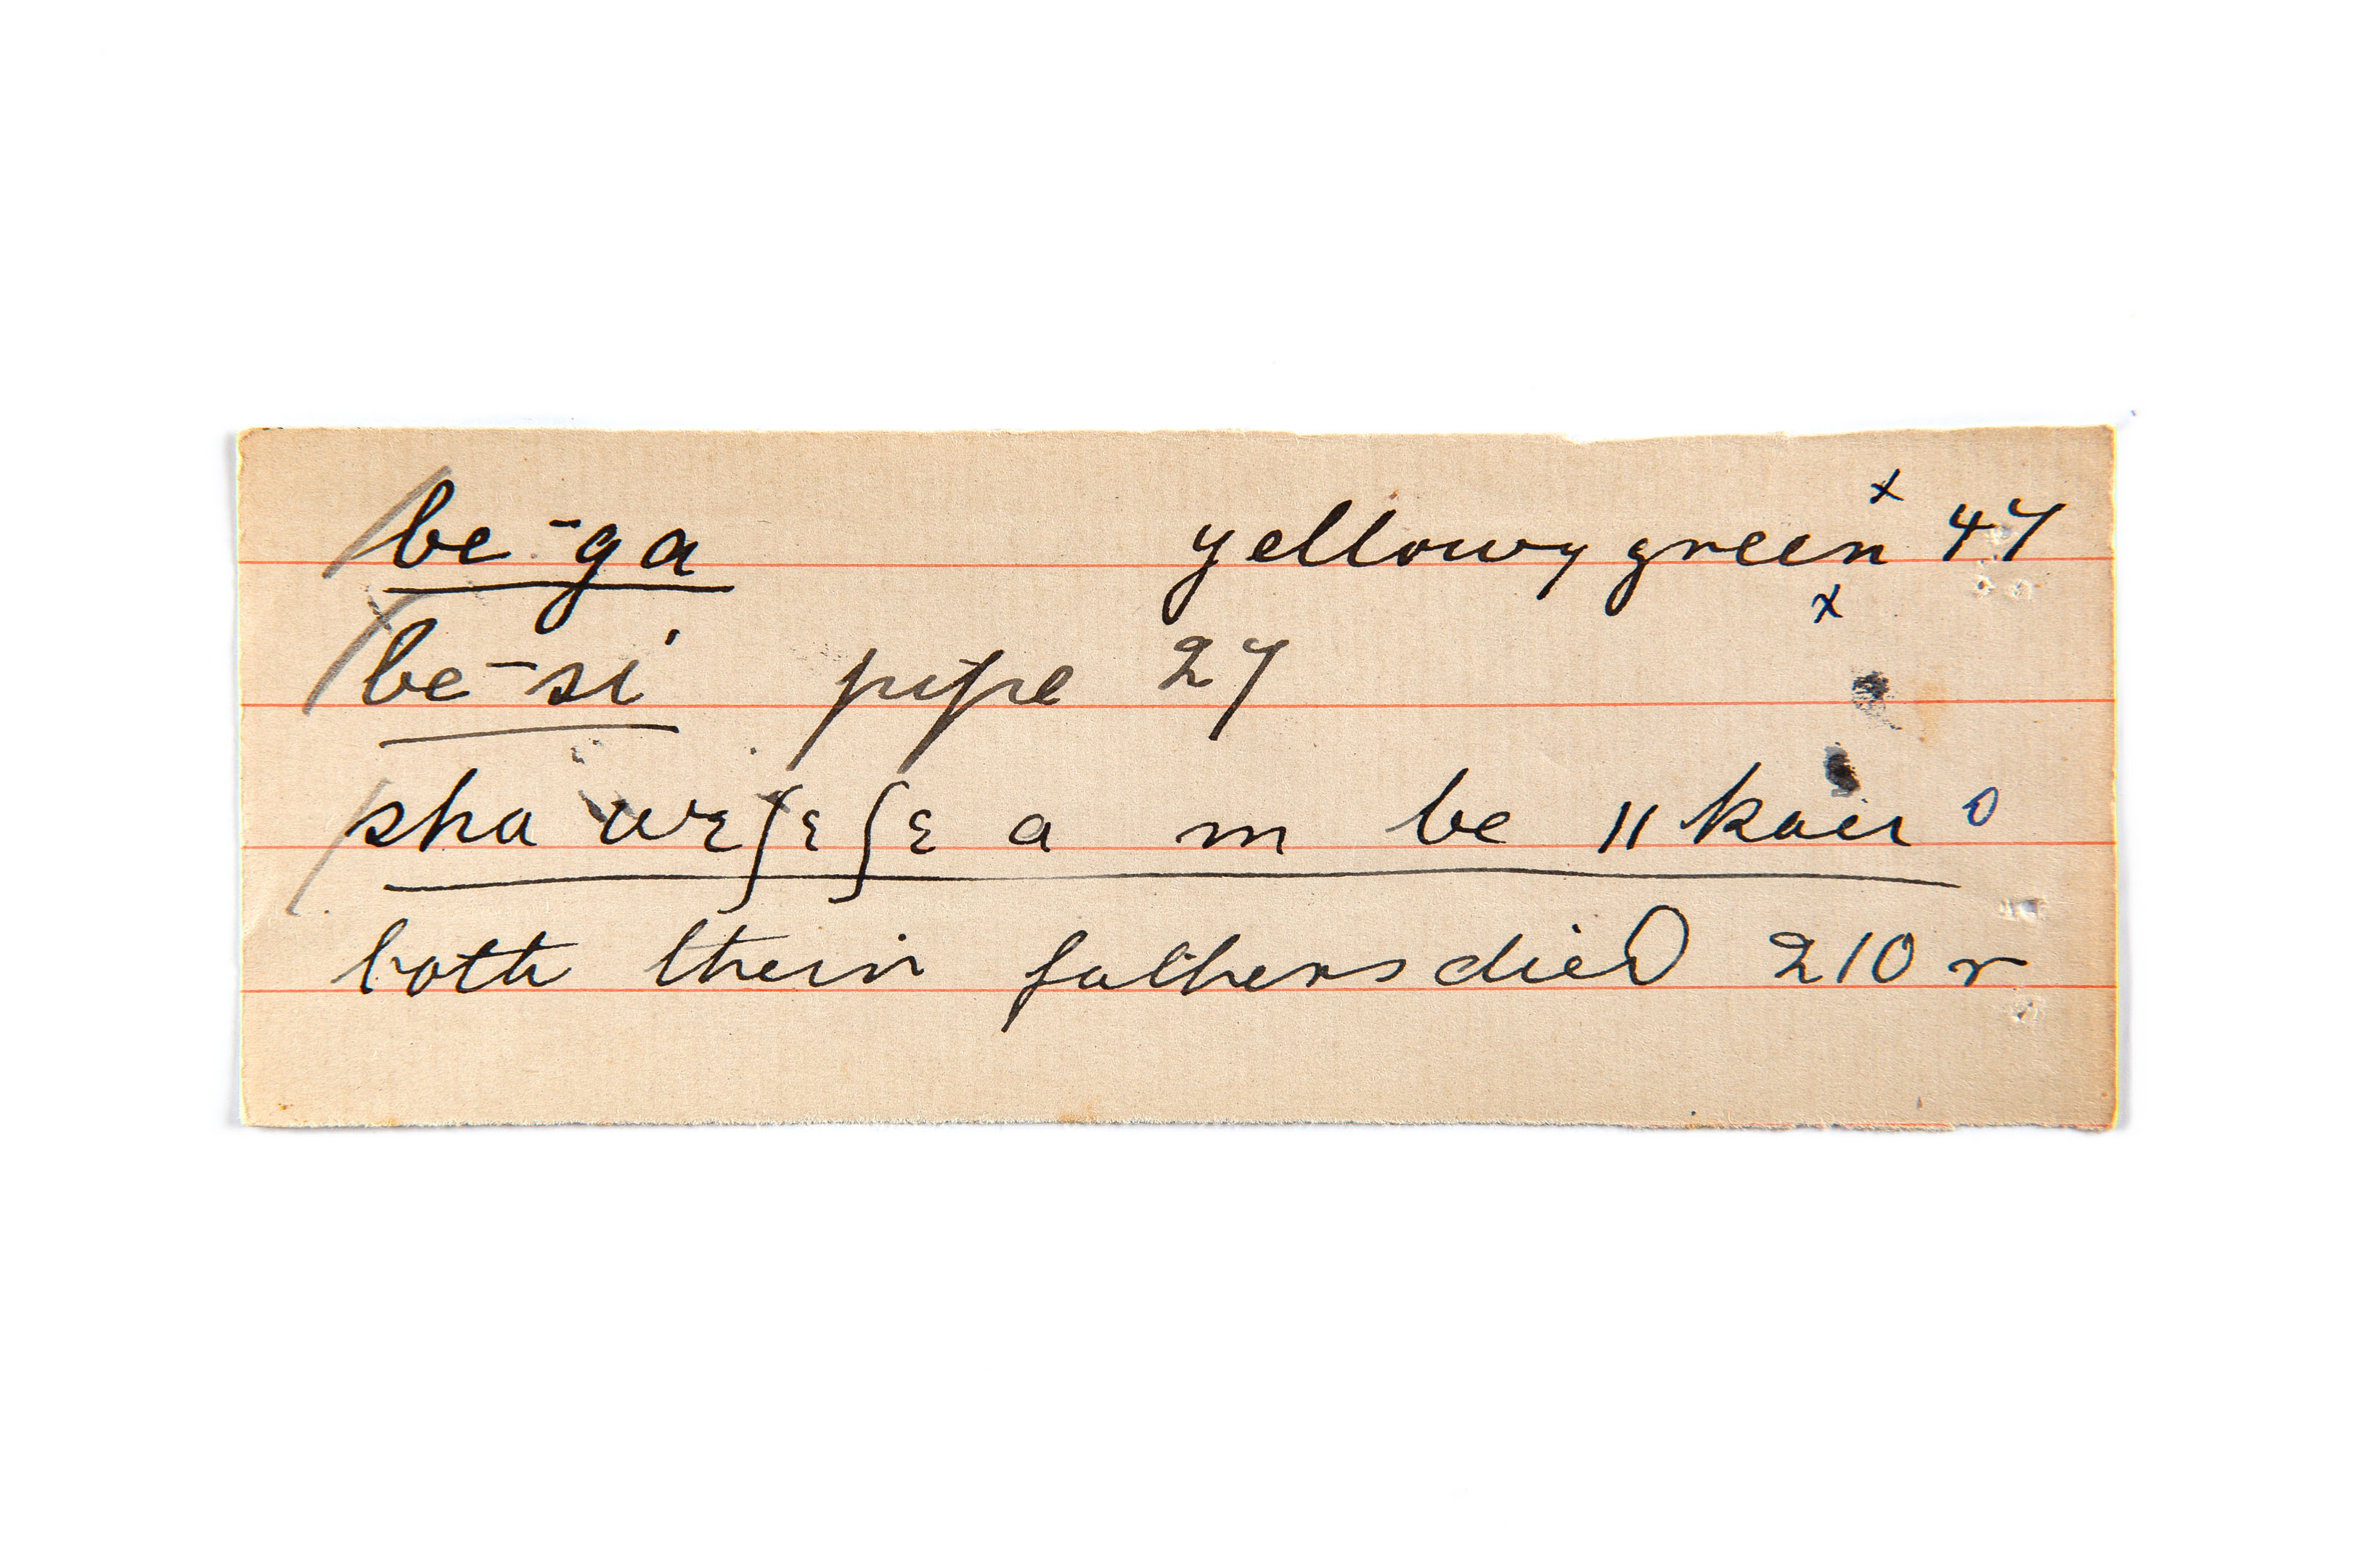 be-ga yellowy green x 47
x
be-si pipe 27
sha wɛʃɛʃɛ a m be || kau o
both their fathers died 210 r